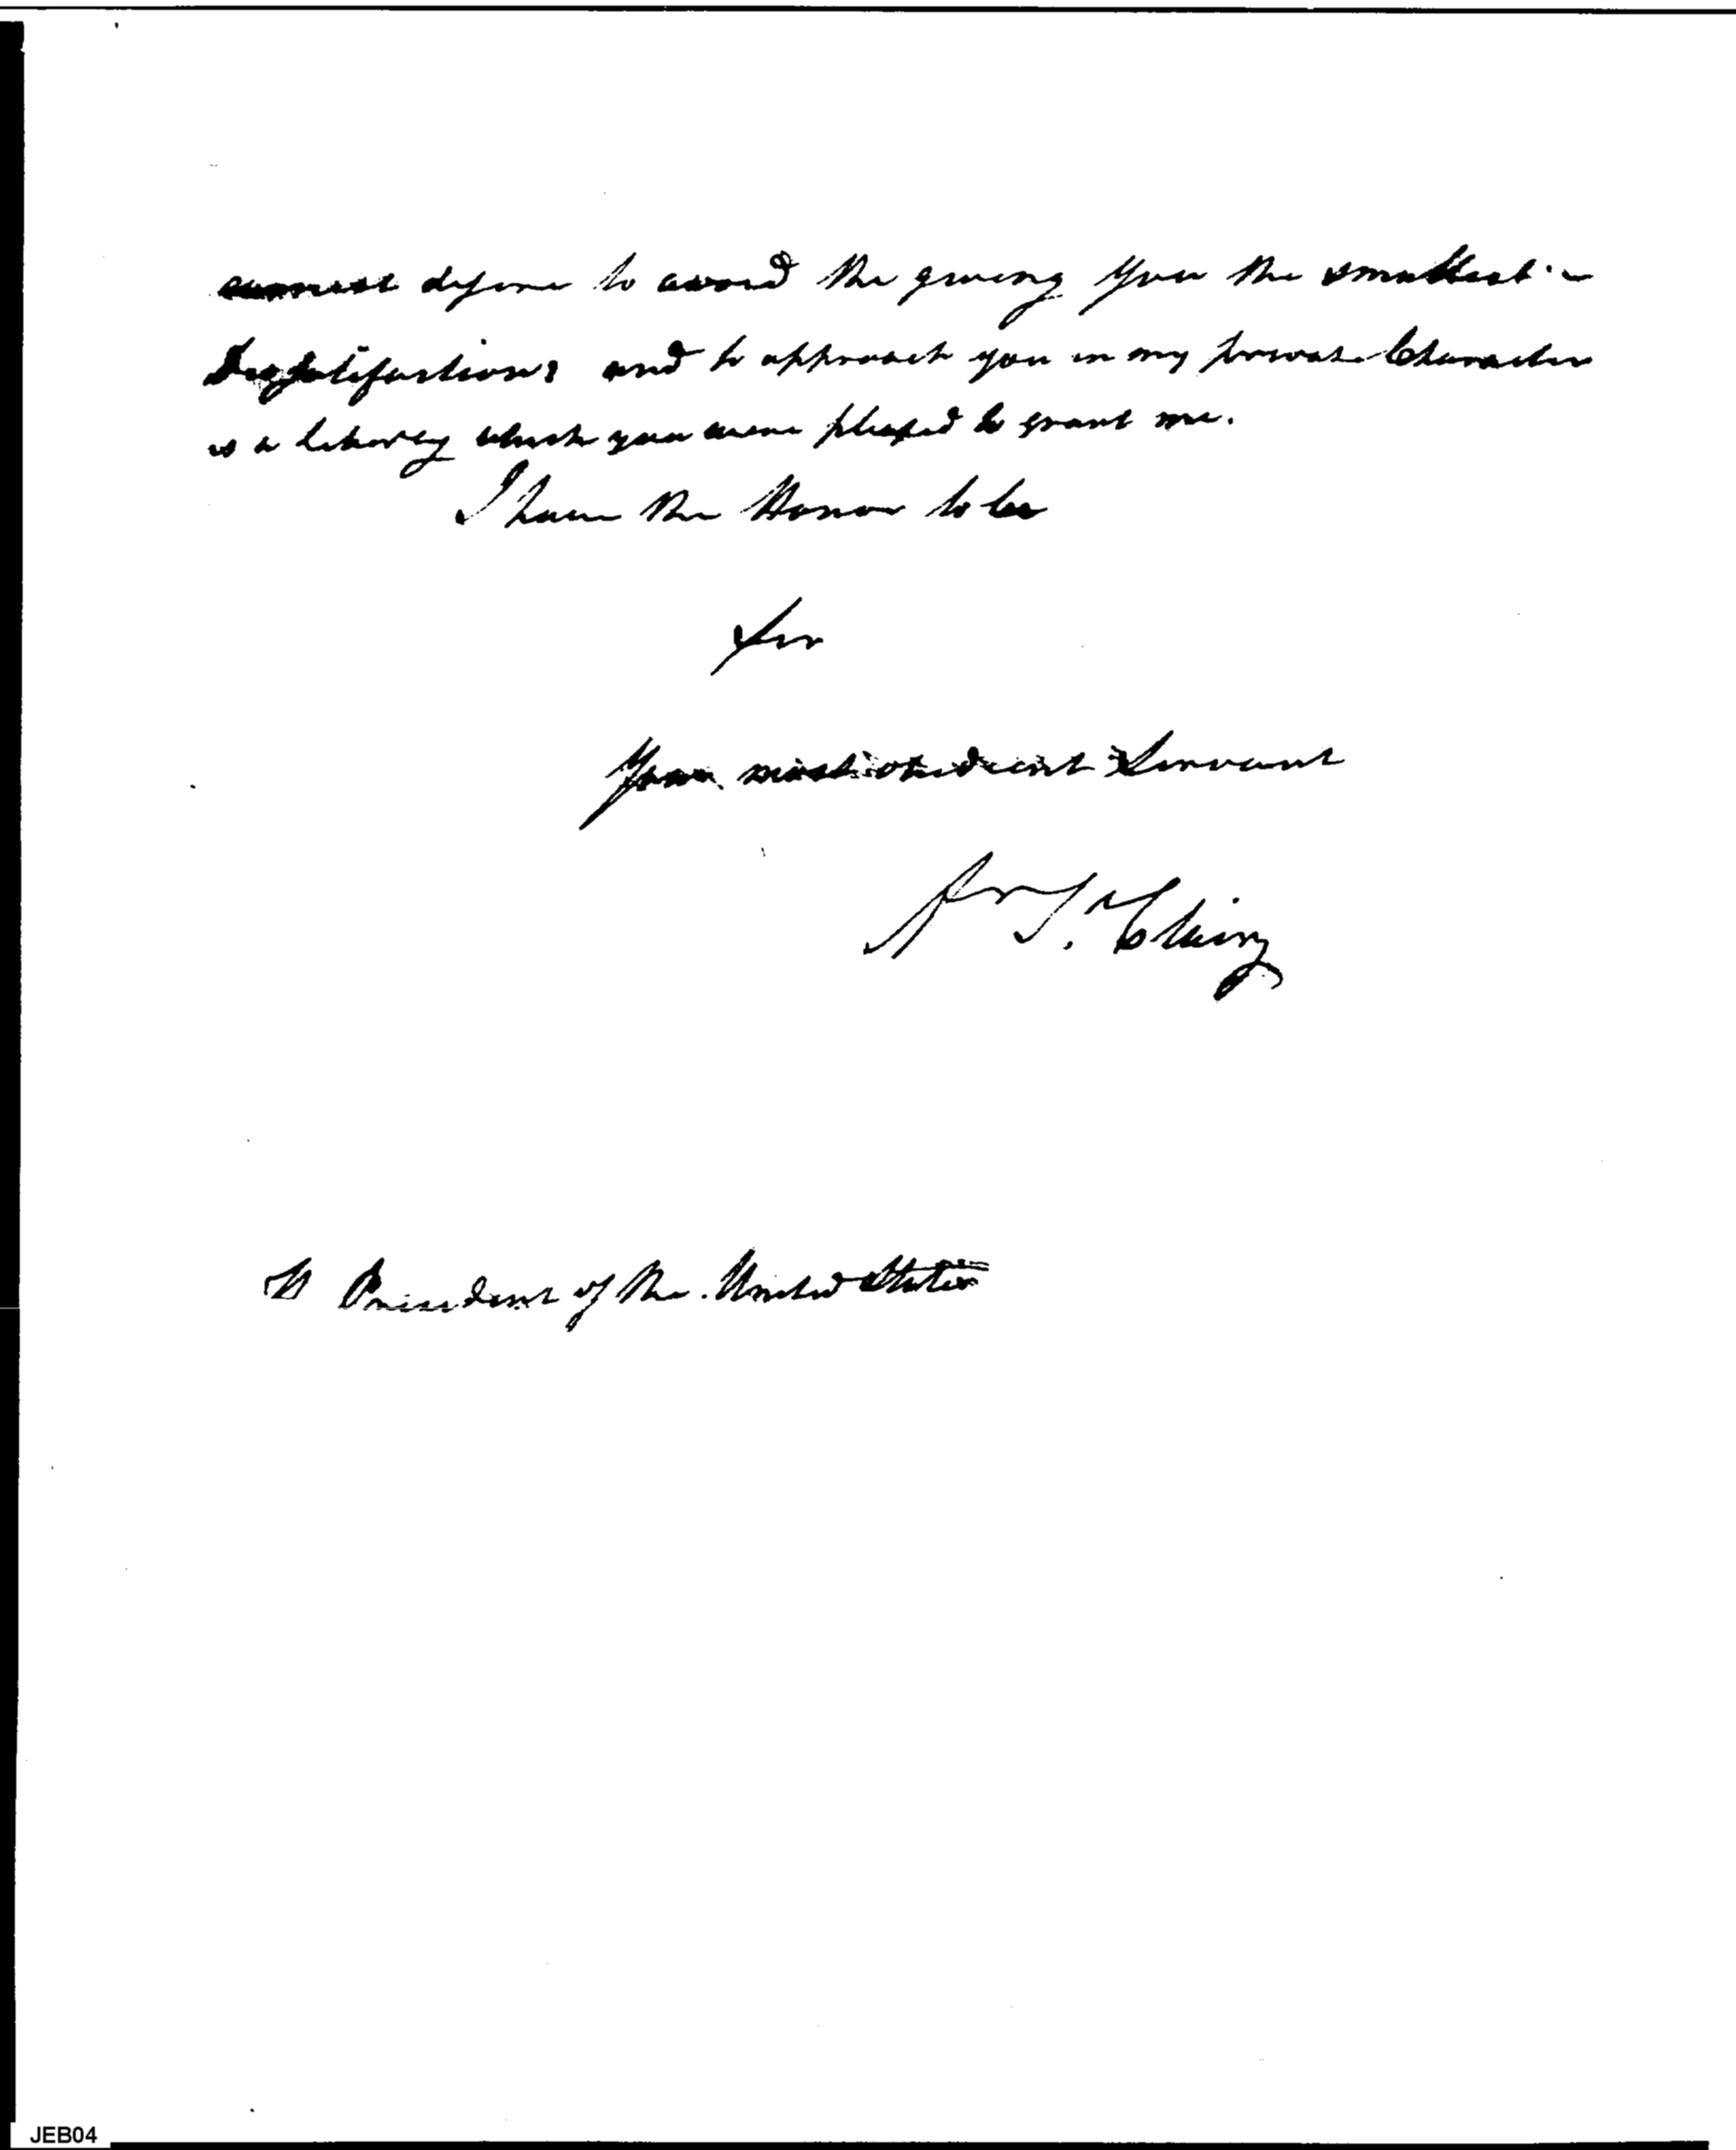 earnest desire to avoid the giving you the smallest
Dissatisfaction, and to approach you in my private Character
is a liberty which you were pleased to grant me.
I have the Honor to be
Sir
Your most obedient Servant
To President of the United States
JEB04